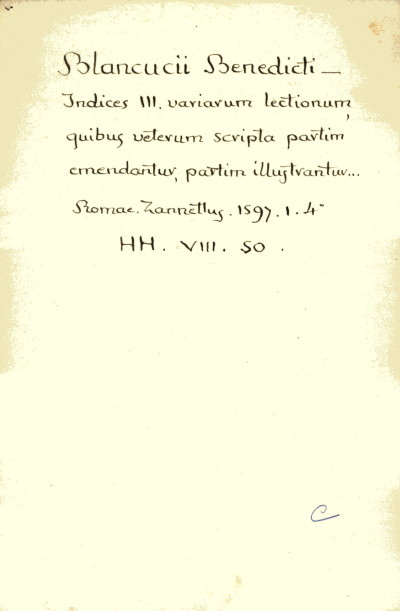 Blancucii Benedicti —
Indices III. variarum lectionum,
quibus veterum scripta partim
emendantur, partim illustrantur...
Romae. Zannettus. 1597. 1. 4°
HH. VIII. 50.
C